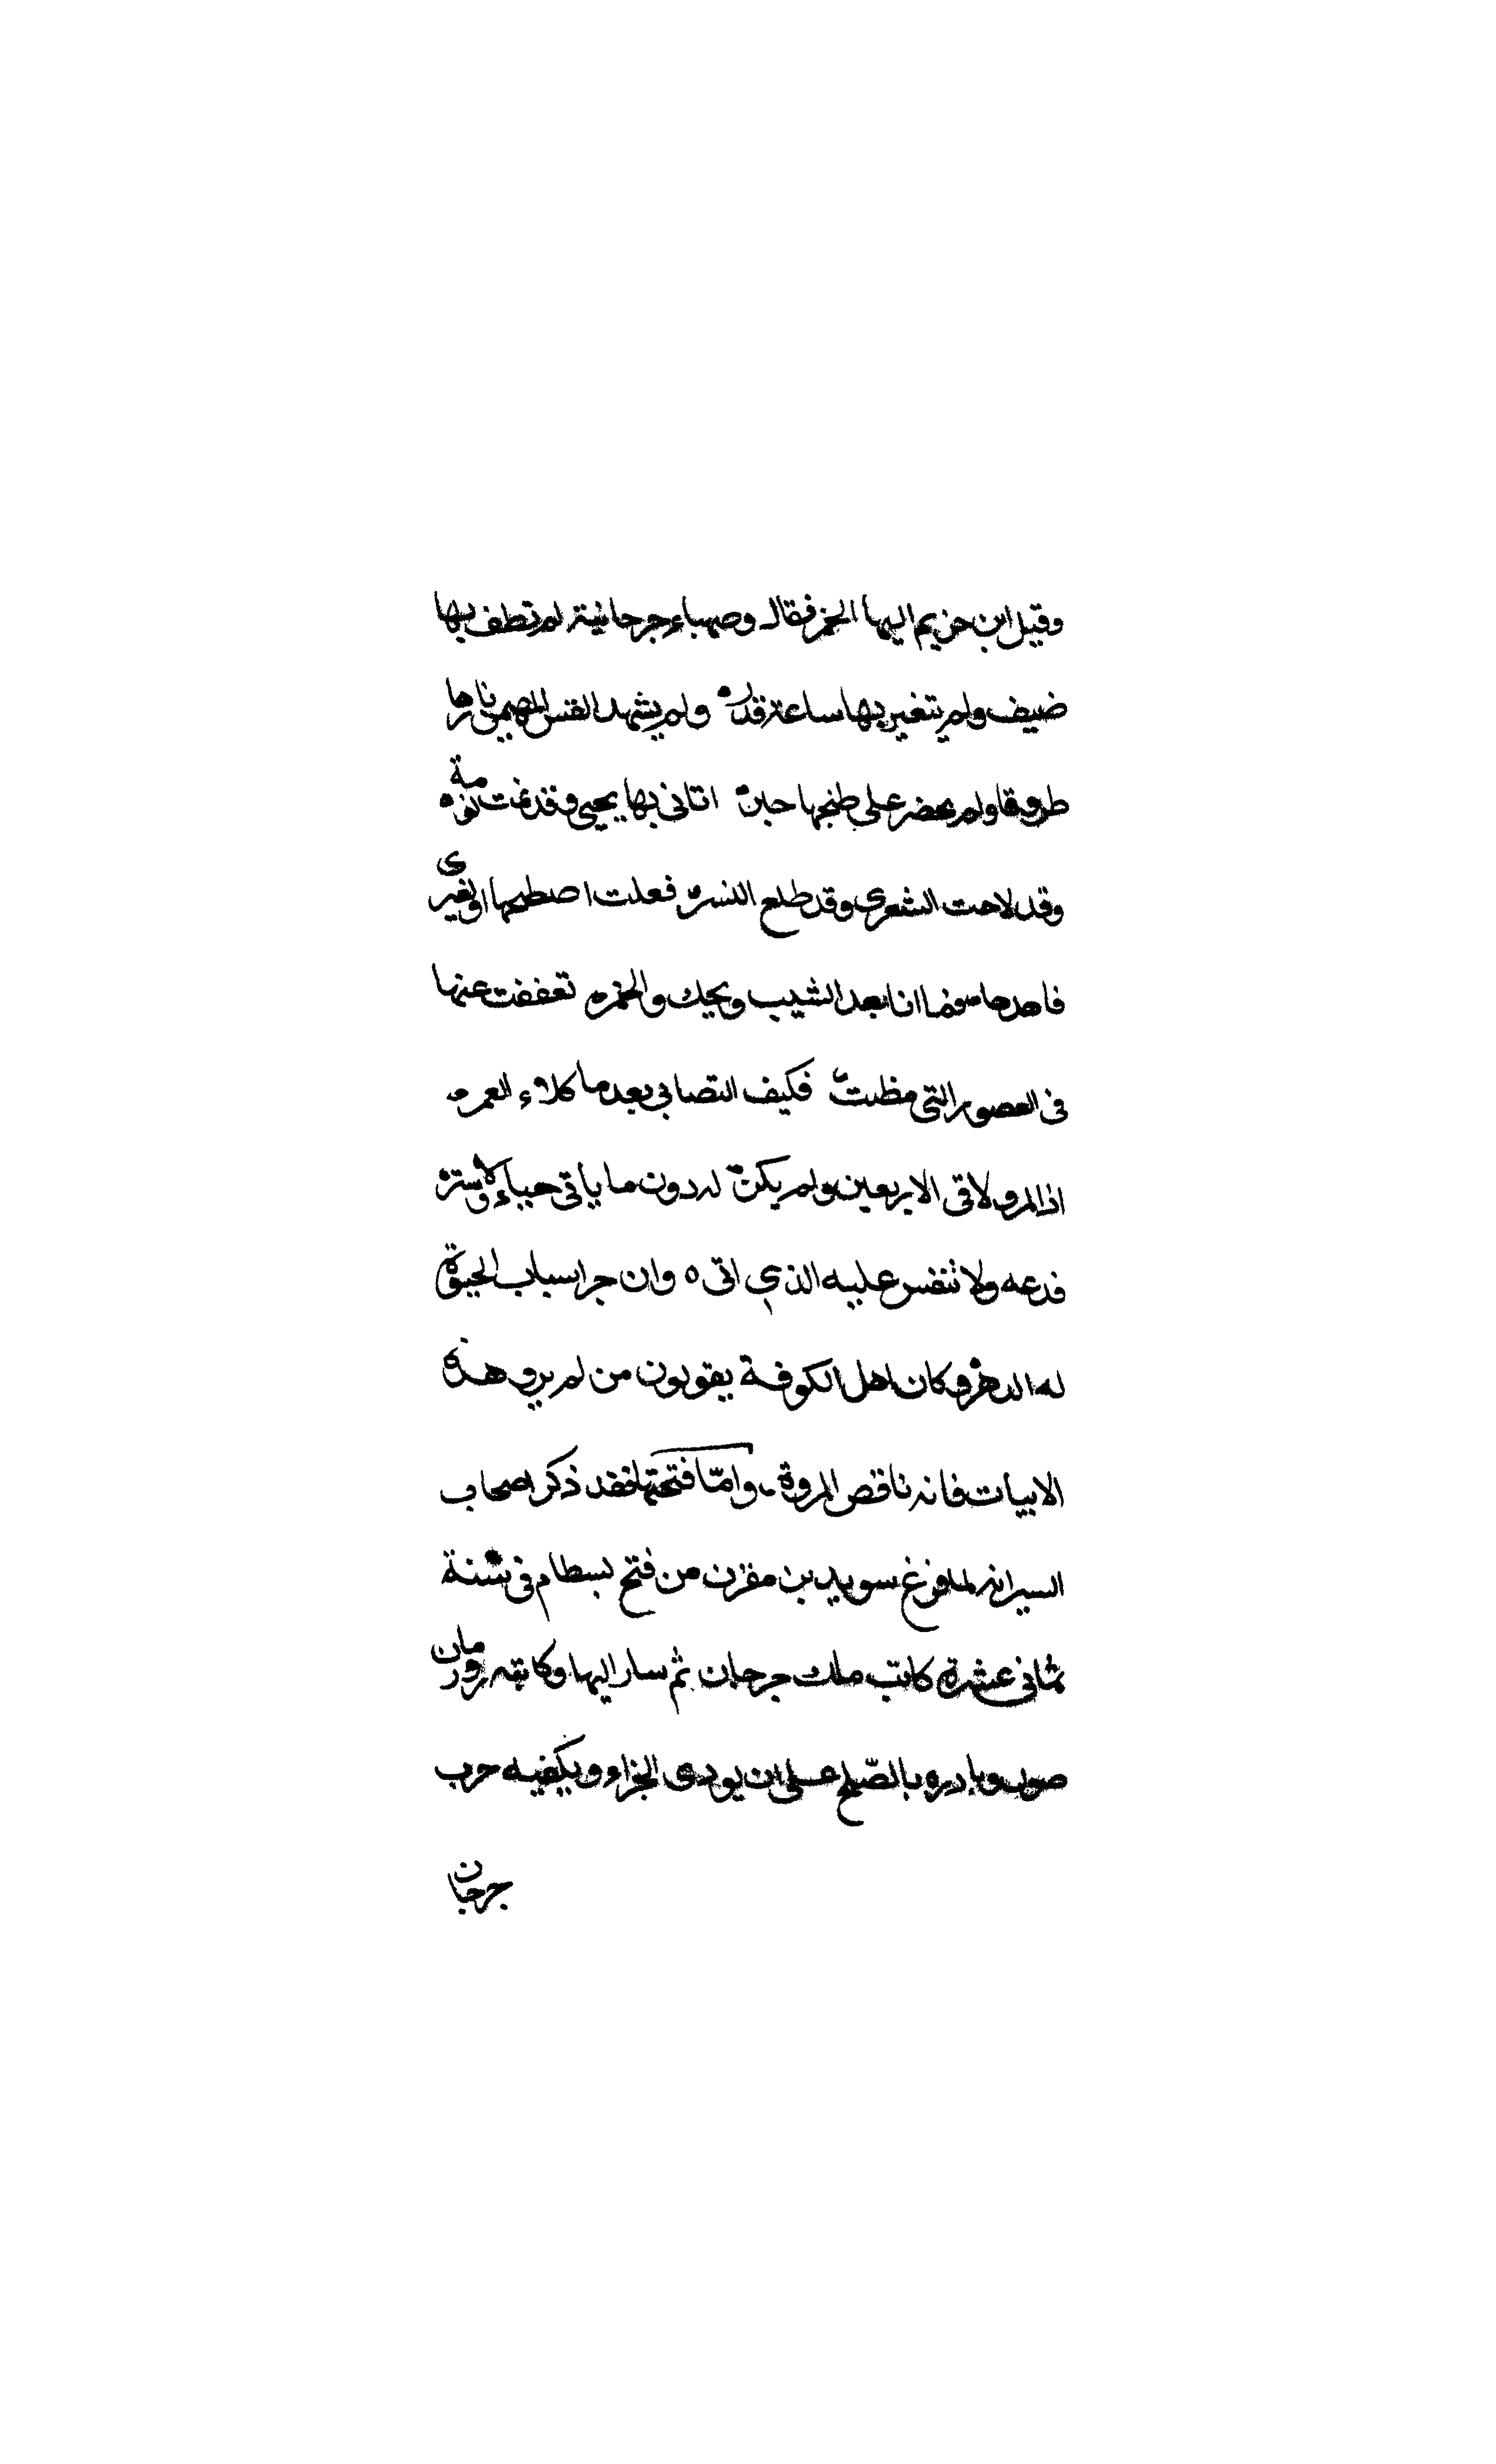 وقيل ابن خزيم اليها الخمر فقال وصهباء جرجانية لم تطف بها
ضيف ولم يتغير بها ساعة قدره ولم يشهد القس المهيمن نارها
طروقا ولم يحضر على طنجها حبره اتانى بها يحيى وقد نمت نومة
وقد لاحت الشعرى وقد طلع النسره فعلت اصطحها او لغيرى
فاهدها فما انا بعد الشيب ويحك والخمره تعففت عنها
فى العصور التى مظت فكيف التصابى بعد ما كلاء العمره
اذا المرو لاقى الاربعين ولم يكن له دون ما ياتى حياء ولا ستره
فدعه ولا تنفس عليه الذي اتى ه وان جر اسباب الحيوة
له الدهر وكان اهل الكوفة يقولون من لم يرو هذه
الابيات فانه ناقص المروة وامّا فتحتها فقد ذكر اصحاب
السير انه لما فرغ سويد بن مقرن من فتح بسطام فى سنة
ثمانى عشرة كاتب ملك جرجان ثم سار اليها وكاتبه روزمان
صول وبادره بالصّلح على ان يودى الجزاء ويكفيه حرب
جرجان